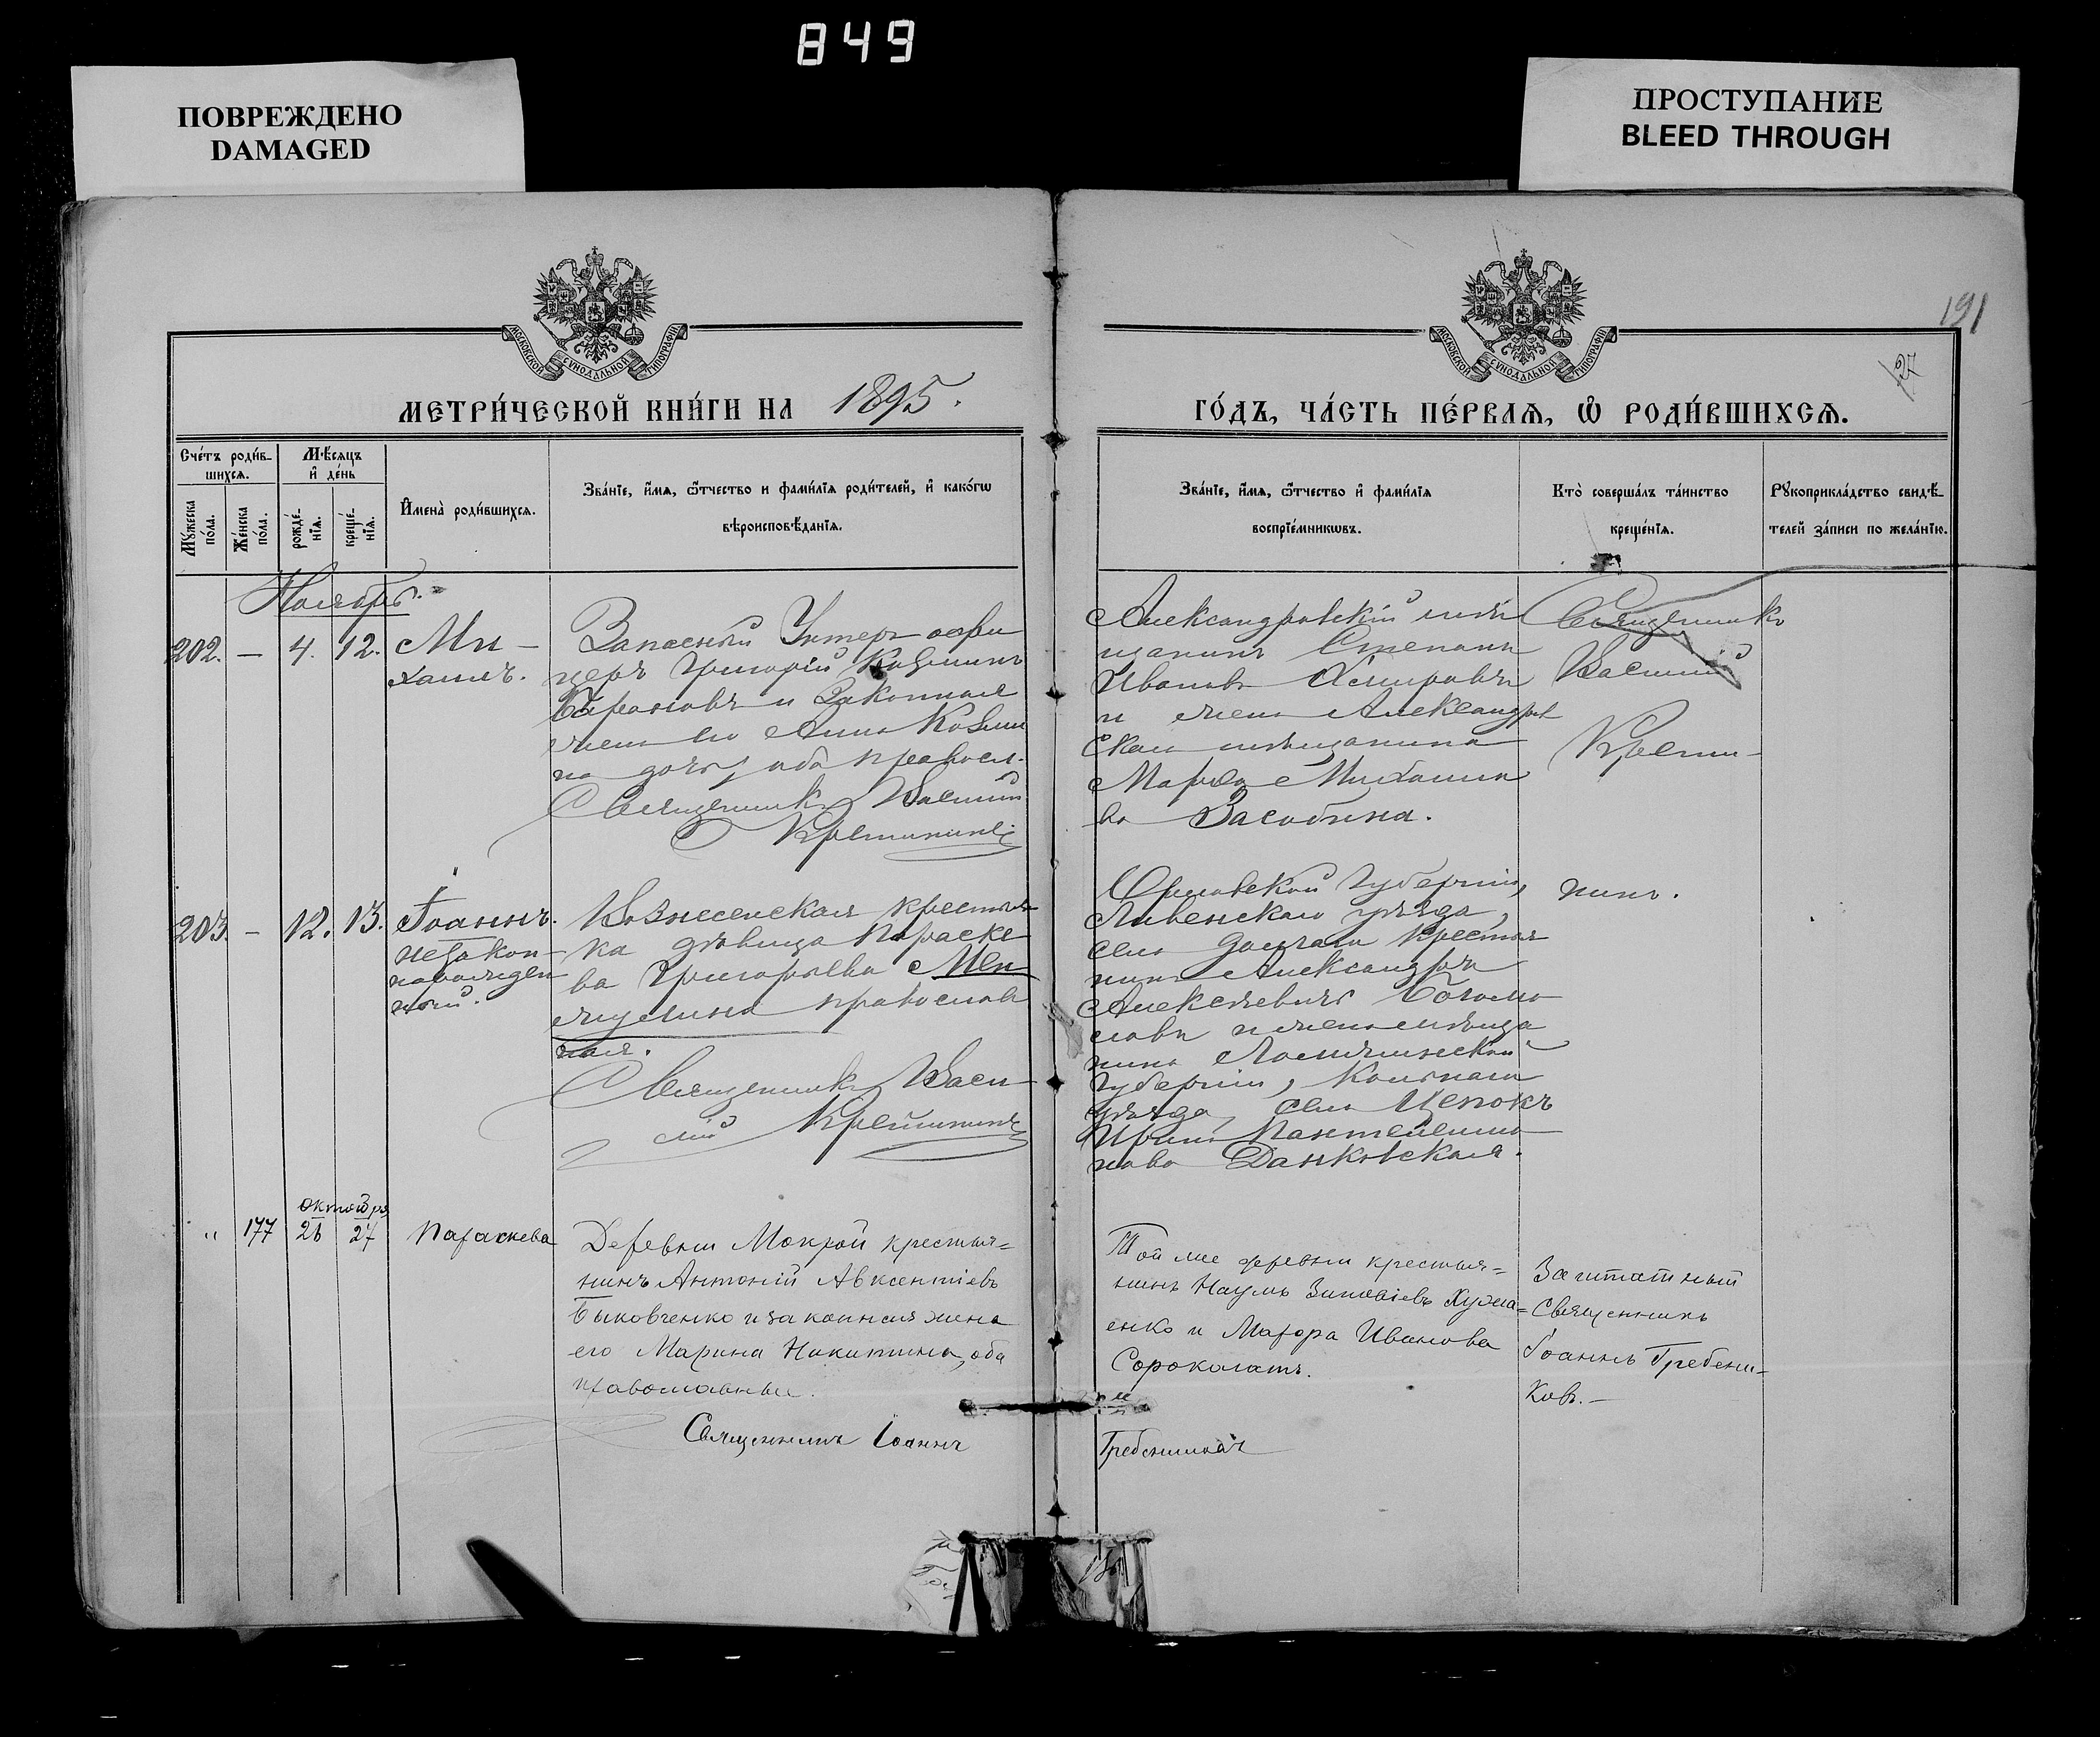 849
ПОВРЕЖДЕНО
DAMAGED
ПРОСТУПАНИЕ
BLEED THROUGH
191
27
МОСКОВСКОЙ СѴНОДАЛЬНОЙ ТИПОГРАФІИ
МОСКОВСКОЙ СѴНОДАЛЬНОЙ ТИПОГРАФІИ
МЕТРИ́ЧЕСКОЙ КНИ́ГИ НА 1895.
ГО́ДЪ, ЧА́СТЬ ПЕ́РВАѦ, Ѡ҆ РОДИ́ВШИХСѦ.
Сче́тъ роди́в-
шихсѧ.
Мѣ́сѧцъ
и҆ де́нь
Мꙋ́жеска
по́ла.
Же́нска
по́ла.
рожде́-
нїѧ.
креще́-
нїѧ.
И҆мена̀ роди́вшихсѧ.
Зва́нїе, и҆́мѧ, ѻ҆́тчество и фами́лїѧ роди́телей, и҆ како́гѡ
вѣроисповѣ́данїѧ.
Зва́нїе, и҆́мѧ, ѻ҆́тчество и҆ фами́лїѧ
воспрїе́мникѡвъ.
Кто̀ соверша́лъ та́инство
креще́нїѧ.
Рꙋкоприкла́дство свидѣ́-
телей за́писи по жела́нїю.
Ноябрь.
202. — 4. 12. Ми-
хаилъ.
Запасный Унтеръ офи
церъ Григорій Козминъ
Барановъ и законная
жена его Анна Козьми
на дочь, оба правосл.
Священникъ Василій
Крешининъ
Александровскій мѣ
щанинъ Степанъ
Ивановъ
и жена Александров
скаго мѣщанина
Марѳа Михаило
ва Засобина.
Священникъ
Василій
Крети-
203. — 12. 13. Іоаннъ.
незакон-
норожден
ный.
Вознесенская крестьян
ка дѣвица Параске
ва Григорьева Мен
жулина православ
ная.
Священникъ Васи
лій Крешининъ
Орловской Губерніи,
Ливенскаго уѣзда,
села крестья
нинъ Александръ
Алексѣевичъ Богомо
ловъ и жена мѣща
нина
Губерніи,
уѣзда, села
Пантелеимо
нова Данковская.
нинъ.
октября
" 177 26 27 Параскева
Деревни Мокрой крестья=
нинъ Антоній Авксентіевъ
Быковченко и законная жена
его Марина Никитина, оба
православные.
Священникъ Іоаннъ
Гребенниковъ
Той же деревни крестья=
нинъ Наумъ Зиновіевъ Хума=
енко и Мавра Иванова
Сорокопатъ.
Заштатный
Священникъ
Іоаннъ Гребенни-
ковъ.—